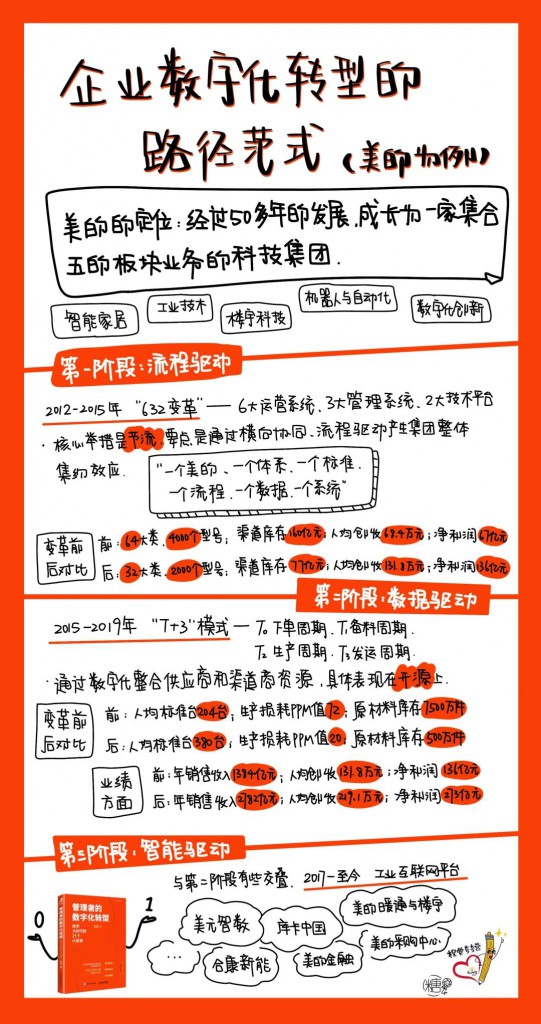 企业数字化转型的
路径范式(美的为例)
美的的定位:经过50多年的发展,成长为一家集合
五的板块业务的科技集团.
智能家居
工业技术
楼宇科技
机器人与自动化
数字化创新
第一阶段:流程驱动
2012-2015年 "632变革" — 6大运营系统、3大管理系统、2大技术平台
·核心举措是节流,要点是通过横向协同、流程驱动产生集团整体
集约效应.
"一个美的、一个体系、一个标准、
一个流程、一个数据、一个系统"
变革前
后对比
前:64大类、4000个型号;渠道库存160亿元;人均创收68.4万元;净利润67亿元
后:32大类、2000个型号;渠道库存77亿元;人均创收131.8万元;净利润136亿元
第二阶段:数据驱动
2015-2019年 "T+3"模式 — T0下单周期、T1备料周期、
T2生产周期、T3发运周期.
·通过数字化整合供应商和渠道商资源,具体表现在开源上.
变革前
后对比
前:人均标准台204台;生产损耗PPM值72;原材料库存1500万件
后:人均标准台380台;生产损耗PPM值20;原材料库存500万件
业绩
方面
前:年销售收入1384亿元;人均创收131.8万元;净利润136亿元
后:年销售收入2782亿元;人均创收219.1万元;净利润273亿元
第三阶段:智能驱动
与第二阶段有些交叠. 2017-至今 工业互联网平台
0
1
管理者的
数字化转型
美元智数
库卡中国
美的暖通与楼宇
...
合康新能
美的金融
美的采购中心